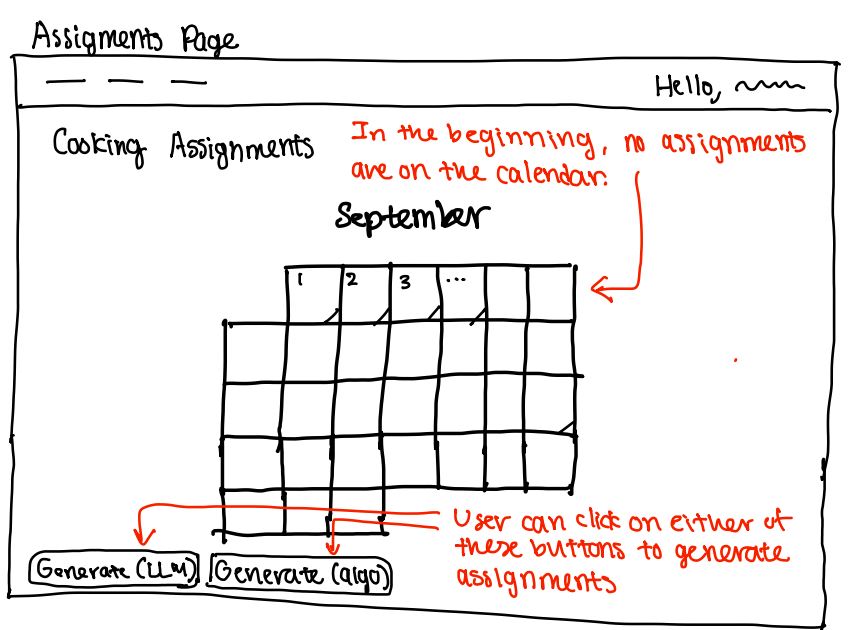 Assigments Page
Hello,
Cooking Assignments
In the beginning, no assignments
are on the calendar.
September
1 2 3 ...
User can click on either of
these buttons to generate
assignments
Generate (LLM) Generate (algo)